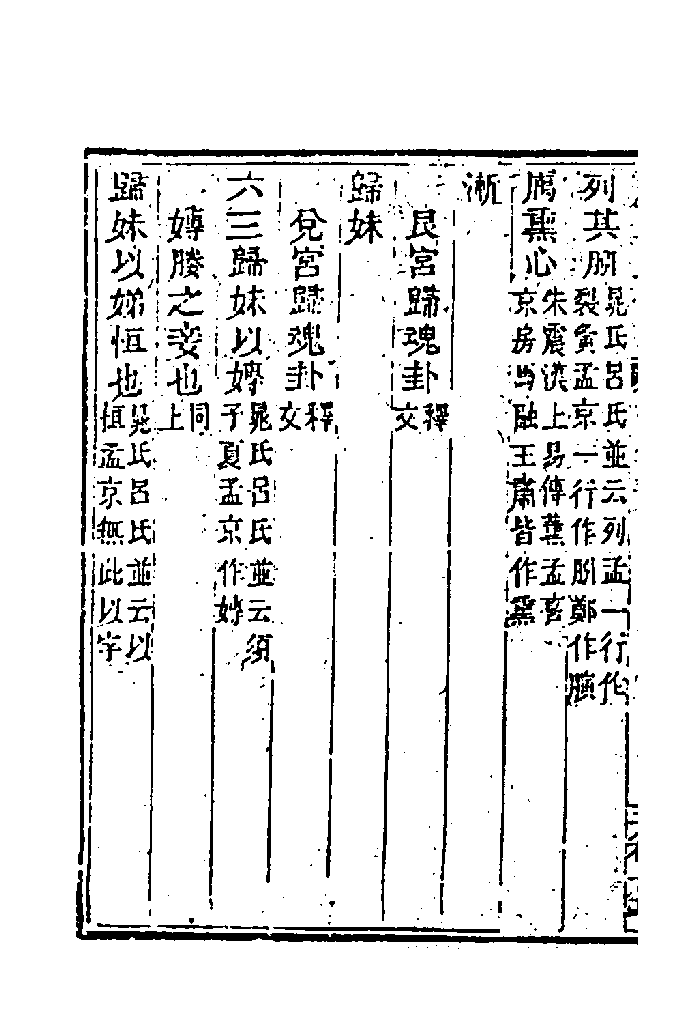 列其䏚晁氏呂氏並云列孟一行作裂夤孟京一行作䏚鄭作䐧
厲熏心朱震漢上易傳薰孟喜京房馬融王肅皆作熏
漸
艮宮歸魂卦釋文
歸妹
兌宮歸魂卦釋文
六三歸妹以嬬晁氏呂氏並云須子夏孟京作嬬
媾媵之妾也同上
歸妹以娣恒也晁氏呂氏並云以恒孟京無此以字